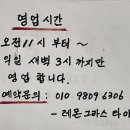 영업시간
오전11시 부터 ~
익일 새벽 3시 까지만
영업 합니다.
예약문의: 010 9809 6306
- 레몬그라스 타이